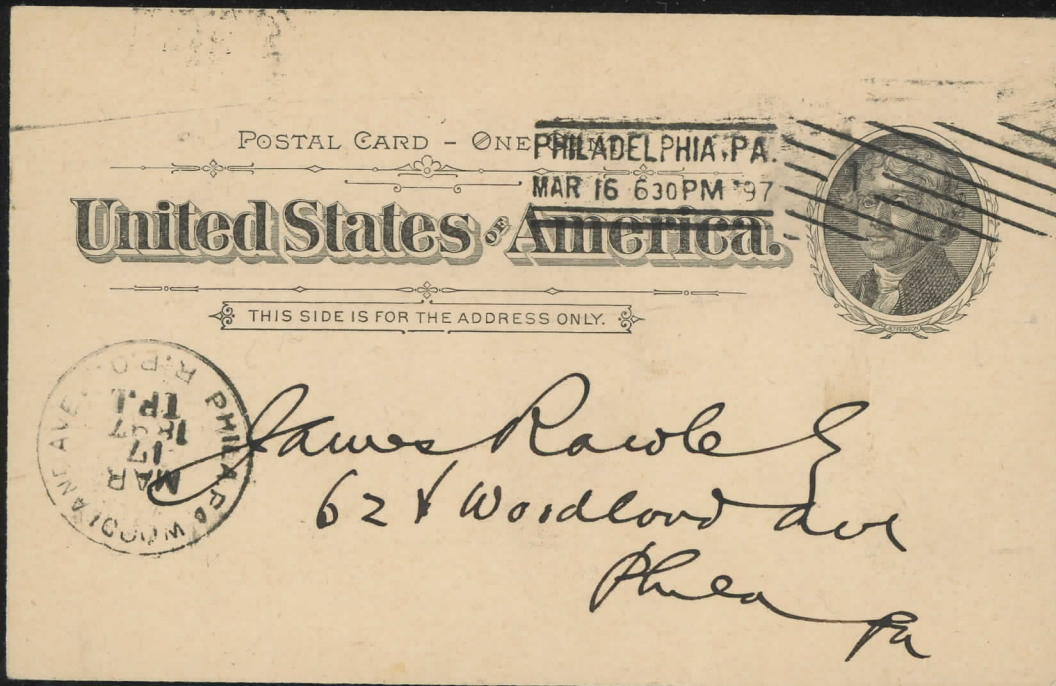 POSTAL CARD - ONE
PHILADELPHIA, PA.
MAR 16 630PM '97
United States OF America.
THIS SIDE IS FOR THE ADDRESS ONLY.
JEFFERSON
PHILA. PA. & WOODLAND AVE. R.P.O.
MAR
17
1897
James Rawle E
62 & Woodland Ave
Phila
Pa